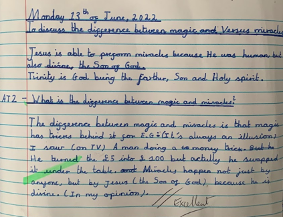 Monday 13th of June, 2022
To discuss the difference between magic and Versus miracles
Jesus is able to perform miracles because He was human but
also divine, the Son of God.
Trinity is God being the farther, Son and Holy spirit.
AT2 - What is the difference between magic and miracles?
The difference between magic and miracles is that magic
has tricks behind it for E.G (It's always an illusion)
I saw (on TV) A man doing a money trick. But the
He turned the £5 into £100 but actully he swapped
it under the table. Miracles happen not just by
anyone, but by Jesus (the Son of God), because he is
divine. (In my opinion).
Excellent